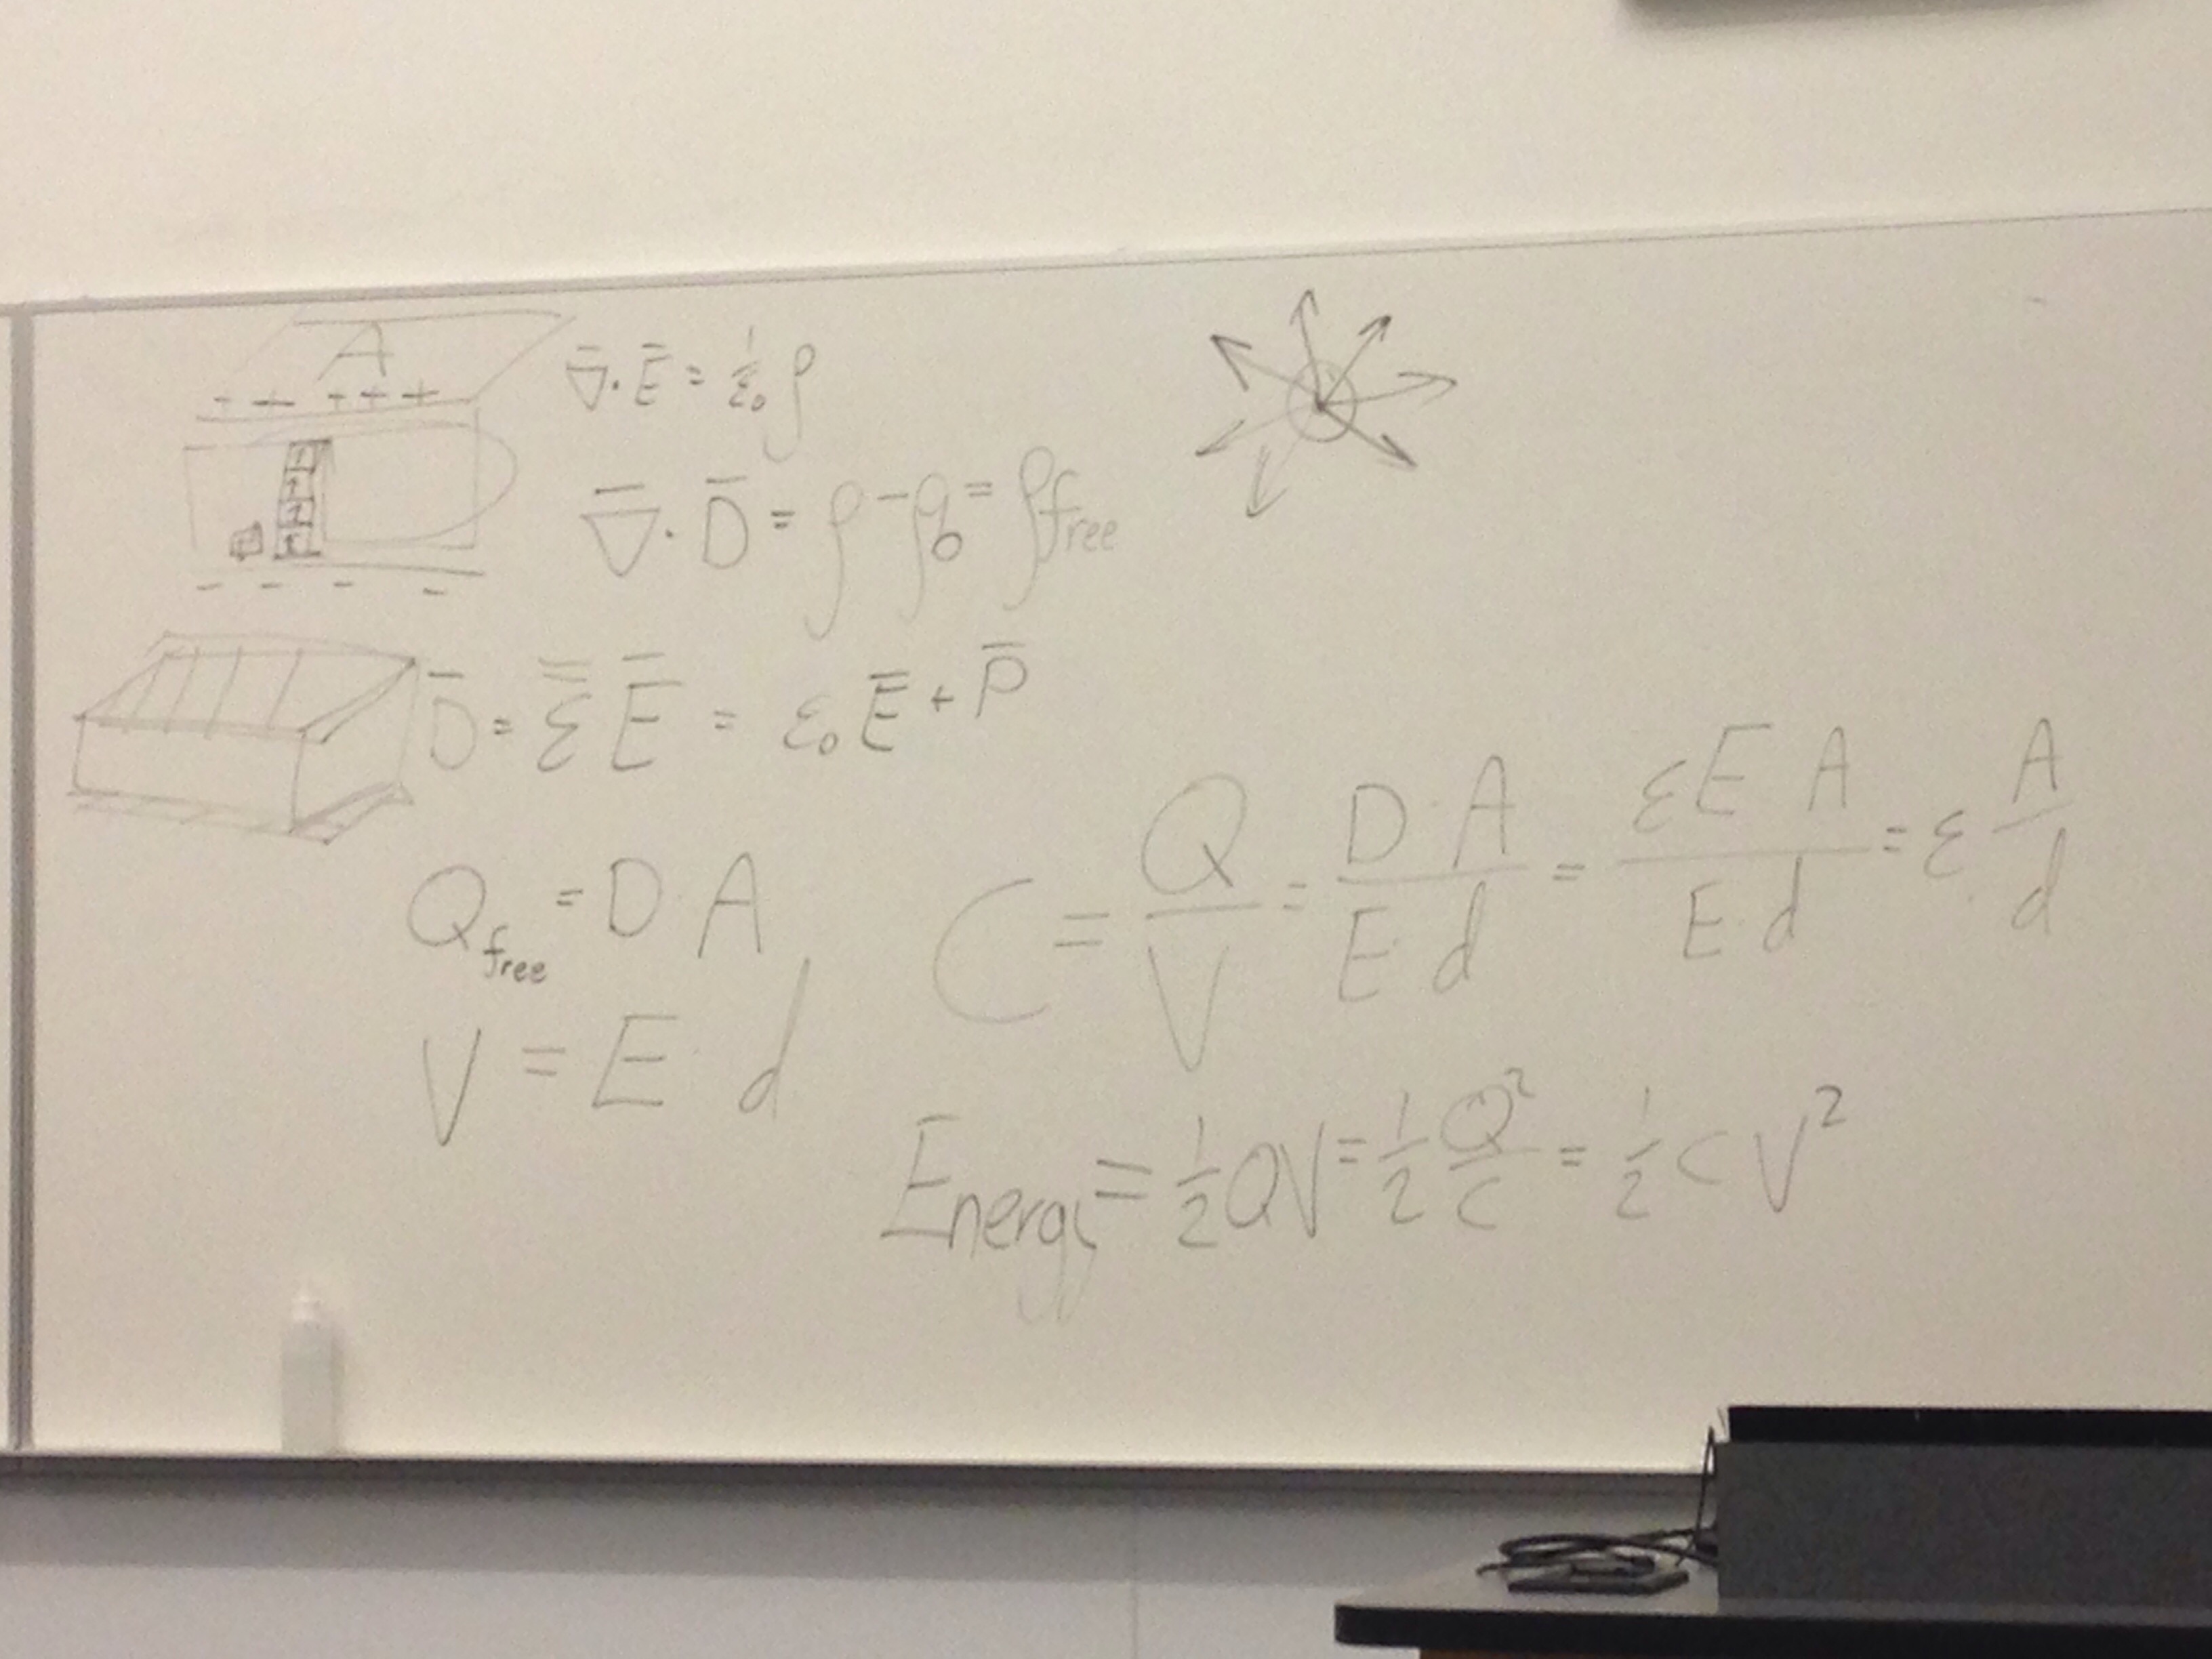 A
+ + + + +
∇̄·Ē = 1/ε₀ ρ
∇̄·D̄ = ρ - ρ_b = ρ_free
- - - -
D̄ = ε̿ Ē = ε₀ Ē + P̄
Q_free = D A
V = E · d
C = Q/V = D·A / E d = ε E A / E·d = ε A/d
Energy = 1/2 QV = 1/2 Q²/C = 1/2 C V²